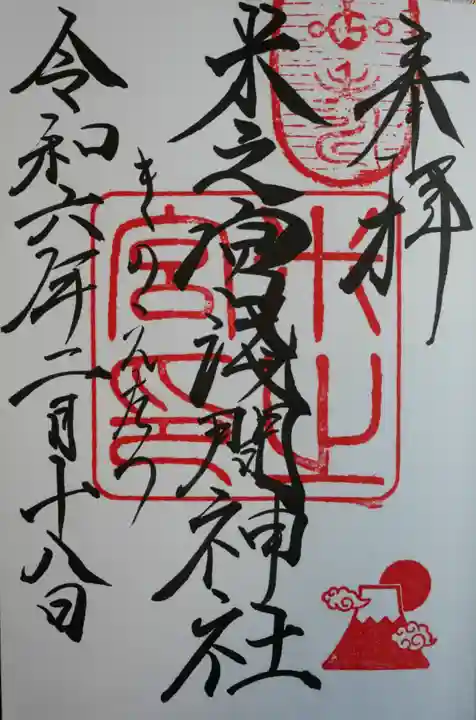 奉拝
米之宮浅間神社
きのえたつ
令和六年二月十八日
米之宮印